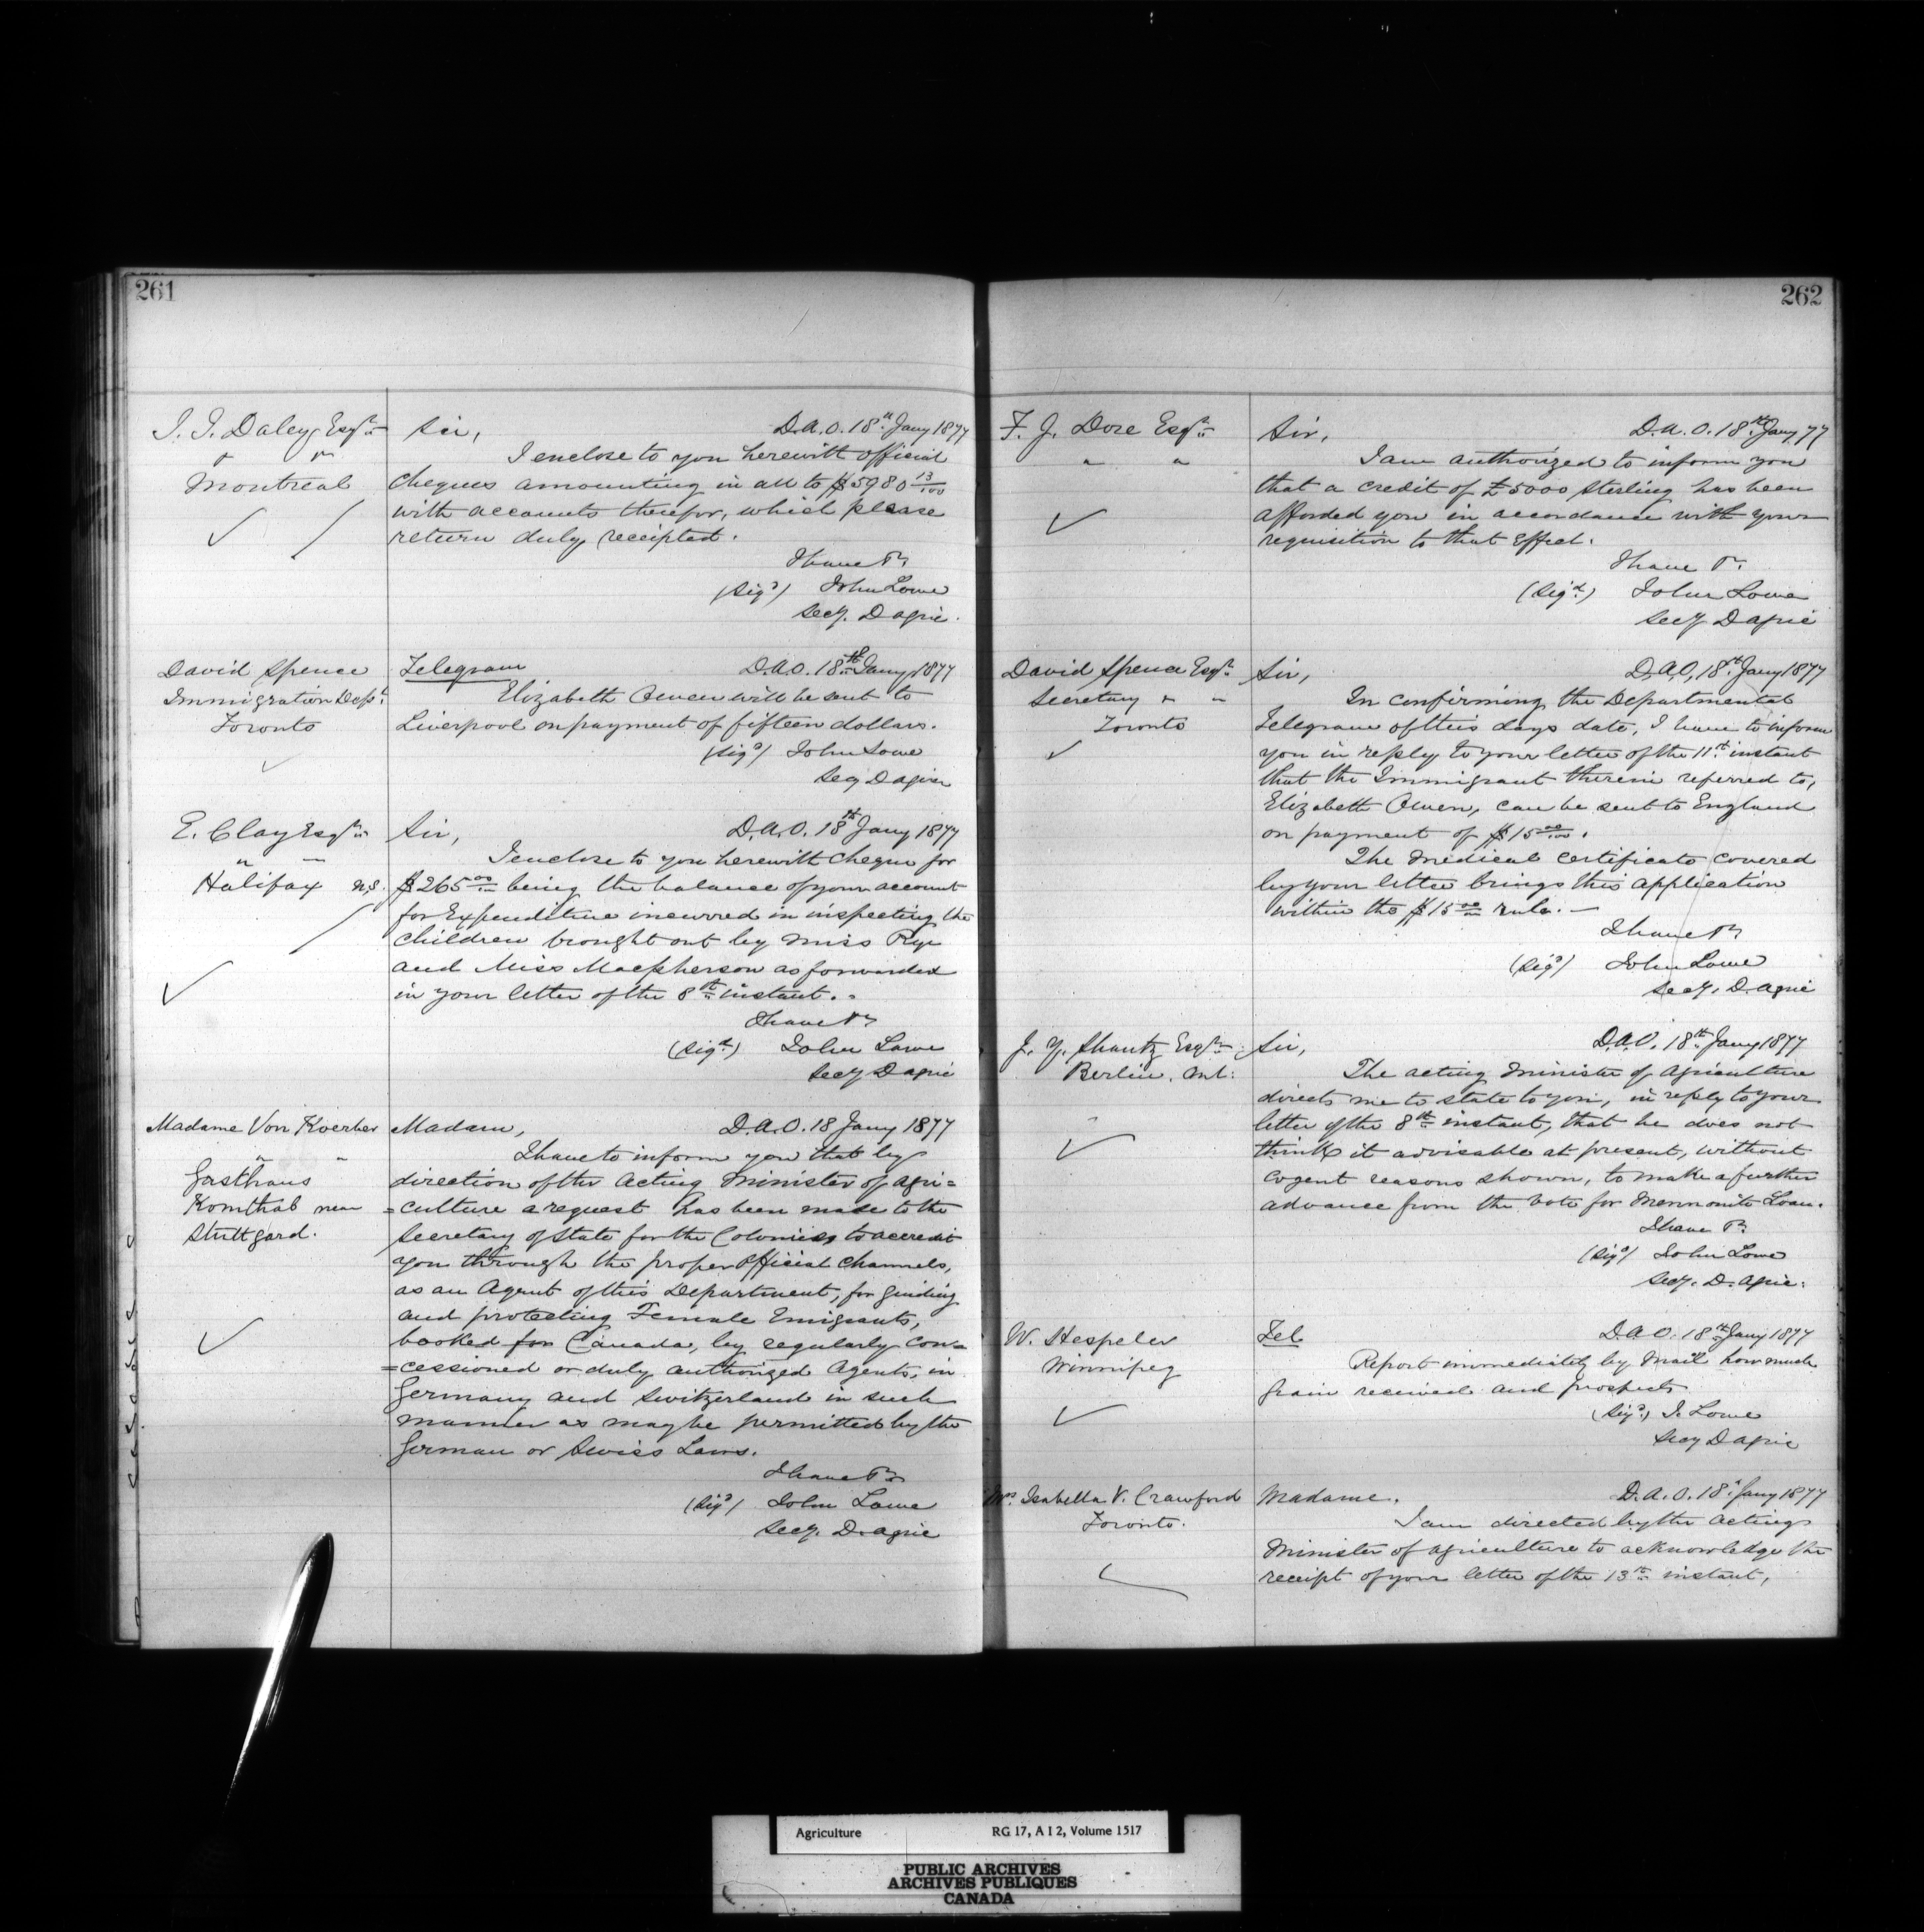 261
J. J. Daley Esqre
" "
Montreal
Sir, D.A.O. 18th Jany 1877
I enclose to you herewith official
cheques amounting in all to $5980 13/100
with accounts therefor, which please
return duly receipted.
I have &c
(Sigd) John Lowe
Secy. D Agric.
David Spence
Immigration Dept.
Toronto
Telegram D.A.O. 18th Jany 1877
Elizabeth Owen will be sent to
Liverpool on payment of fifteen dollars.
(Sigd) John Lowe
Secy D Agric
E. Clay Esqre
" "
Halifax N.S.
Sir, D.A.O. 18th Jany 1877
I enclose to you herewith cheque for
$265 00/100 being the balance of your account
for Expenditure incurred in inspecting the
children brought out by Miss Rye
and Miss Macpherson as forwarded
in your letter of the 8th instant.
I have &c
(Sigd) John Lowe
Secy D Agric
Madame Von Koerber
" "
Gasthaus
Kornthal near
Stuttgard.
Madam, D.A.O. 18 Jany 1877
I have to inform you that by
direction of the Acting Minister of Agri=
=culture a request has been made to the
Secretary of State for the Colonies to accredit
you through the proper official channels,
as an Agent of this Department, for guiding
and protecting Female Emigrants,
booked for Canada, by regularly con=
=cessioned or duly authorized Agents, in
Germany and Switzerland in such
manner as may be permitted by the
German or Swiss Laws.
I have &c
(Sigd) John Lowe
Secy. D. Agric
262
F. J. Dore Esqre
" "
Sir, D.A.O. 18th Jany 77
I am authorized to inform you
that a credit of £5000 Sterling has been
afforded you in accordance with your
requisition to that Effect.
I have &c.
(Sigd) John Lowe
Secy D Agric
David Spence Esqre
Secretary " "
Toronto
Sir, D.A.O, 18th Jany 1877
In confirming the Departmental
Telegram of this days date, I have to inform
you in reply to your letter of the 11th instant
that the Immigrant therein referred to,
Elizabeth Owen, can be sent to England
on payment of $15 00/100.
The Medical Certificate covered
by your letter brings this application
within the $15 00/100 rule. —
I have &c
(Sigd) John Lowe
Secy, D. Agric
J. Y. Shantz Esqre
Berlin. Ont:
Sir, D.A.O. 18th Jany 1877
The acting Minister of Agriculture
directs me to state to you, in reply to your
letter of the 8th instant, that he does not
think it advisable at present, without
cogent reasons shown, to make a further
advance from the vote for Mennonite Loan.
I have &c
(Sigd) John Lowe
Secy. D. Agric.
W. Hespeler
Winnipeg
Tel D.A.O. 18th Jany 1877
Report immediately by Mail how much
grain received and prospects
(Sigd) J. Lowe
Secy D Agric
Mrs Isabella V. Crawford
Toronto.
Madame. D.A.O. 18th Jany 1877
I am directed by the Acting
Minister of Agriculture to acknowledge the
receipt of your letter of the 13th instant,
Agriculture RG 17, A I 2, Volume 1517
PUBLIC ARCHIVES
ARCHIVES PUBLIQUES
CANADA